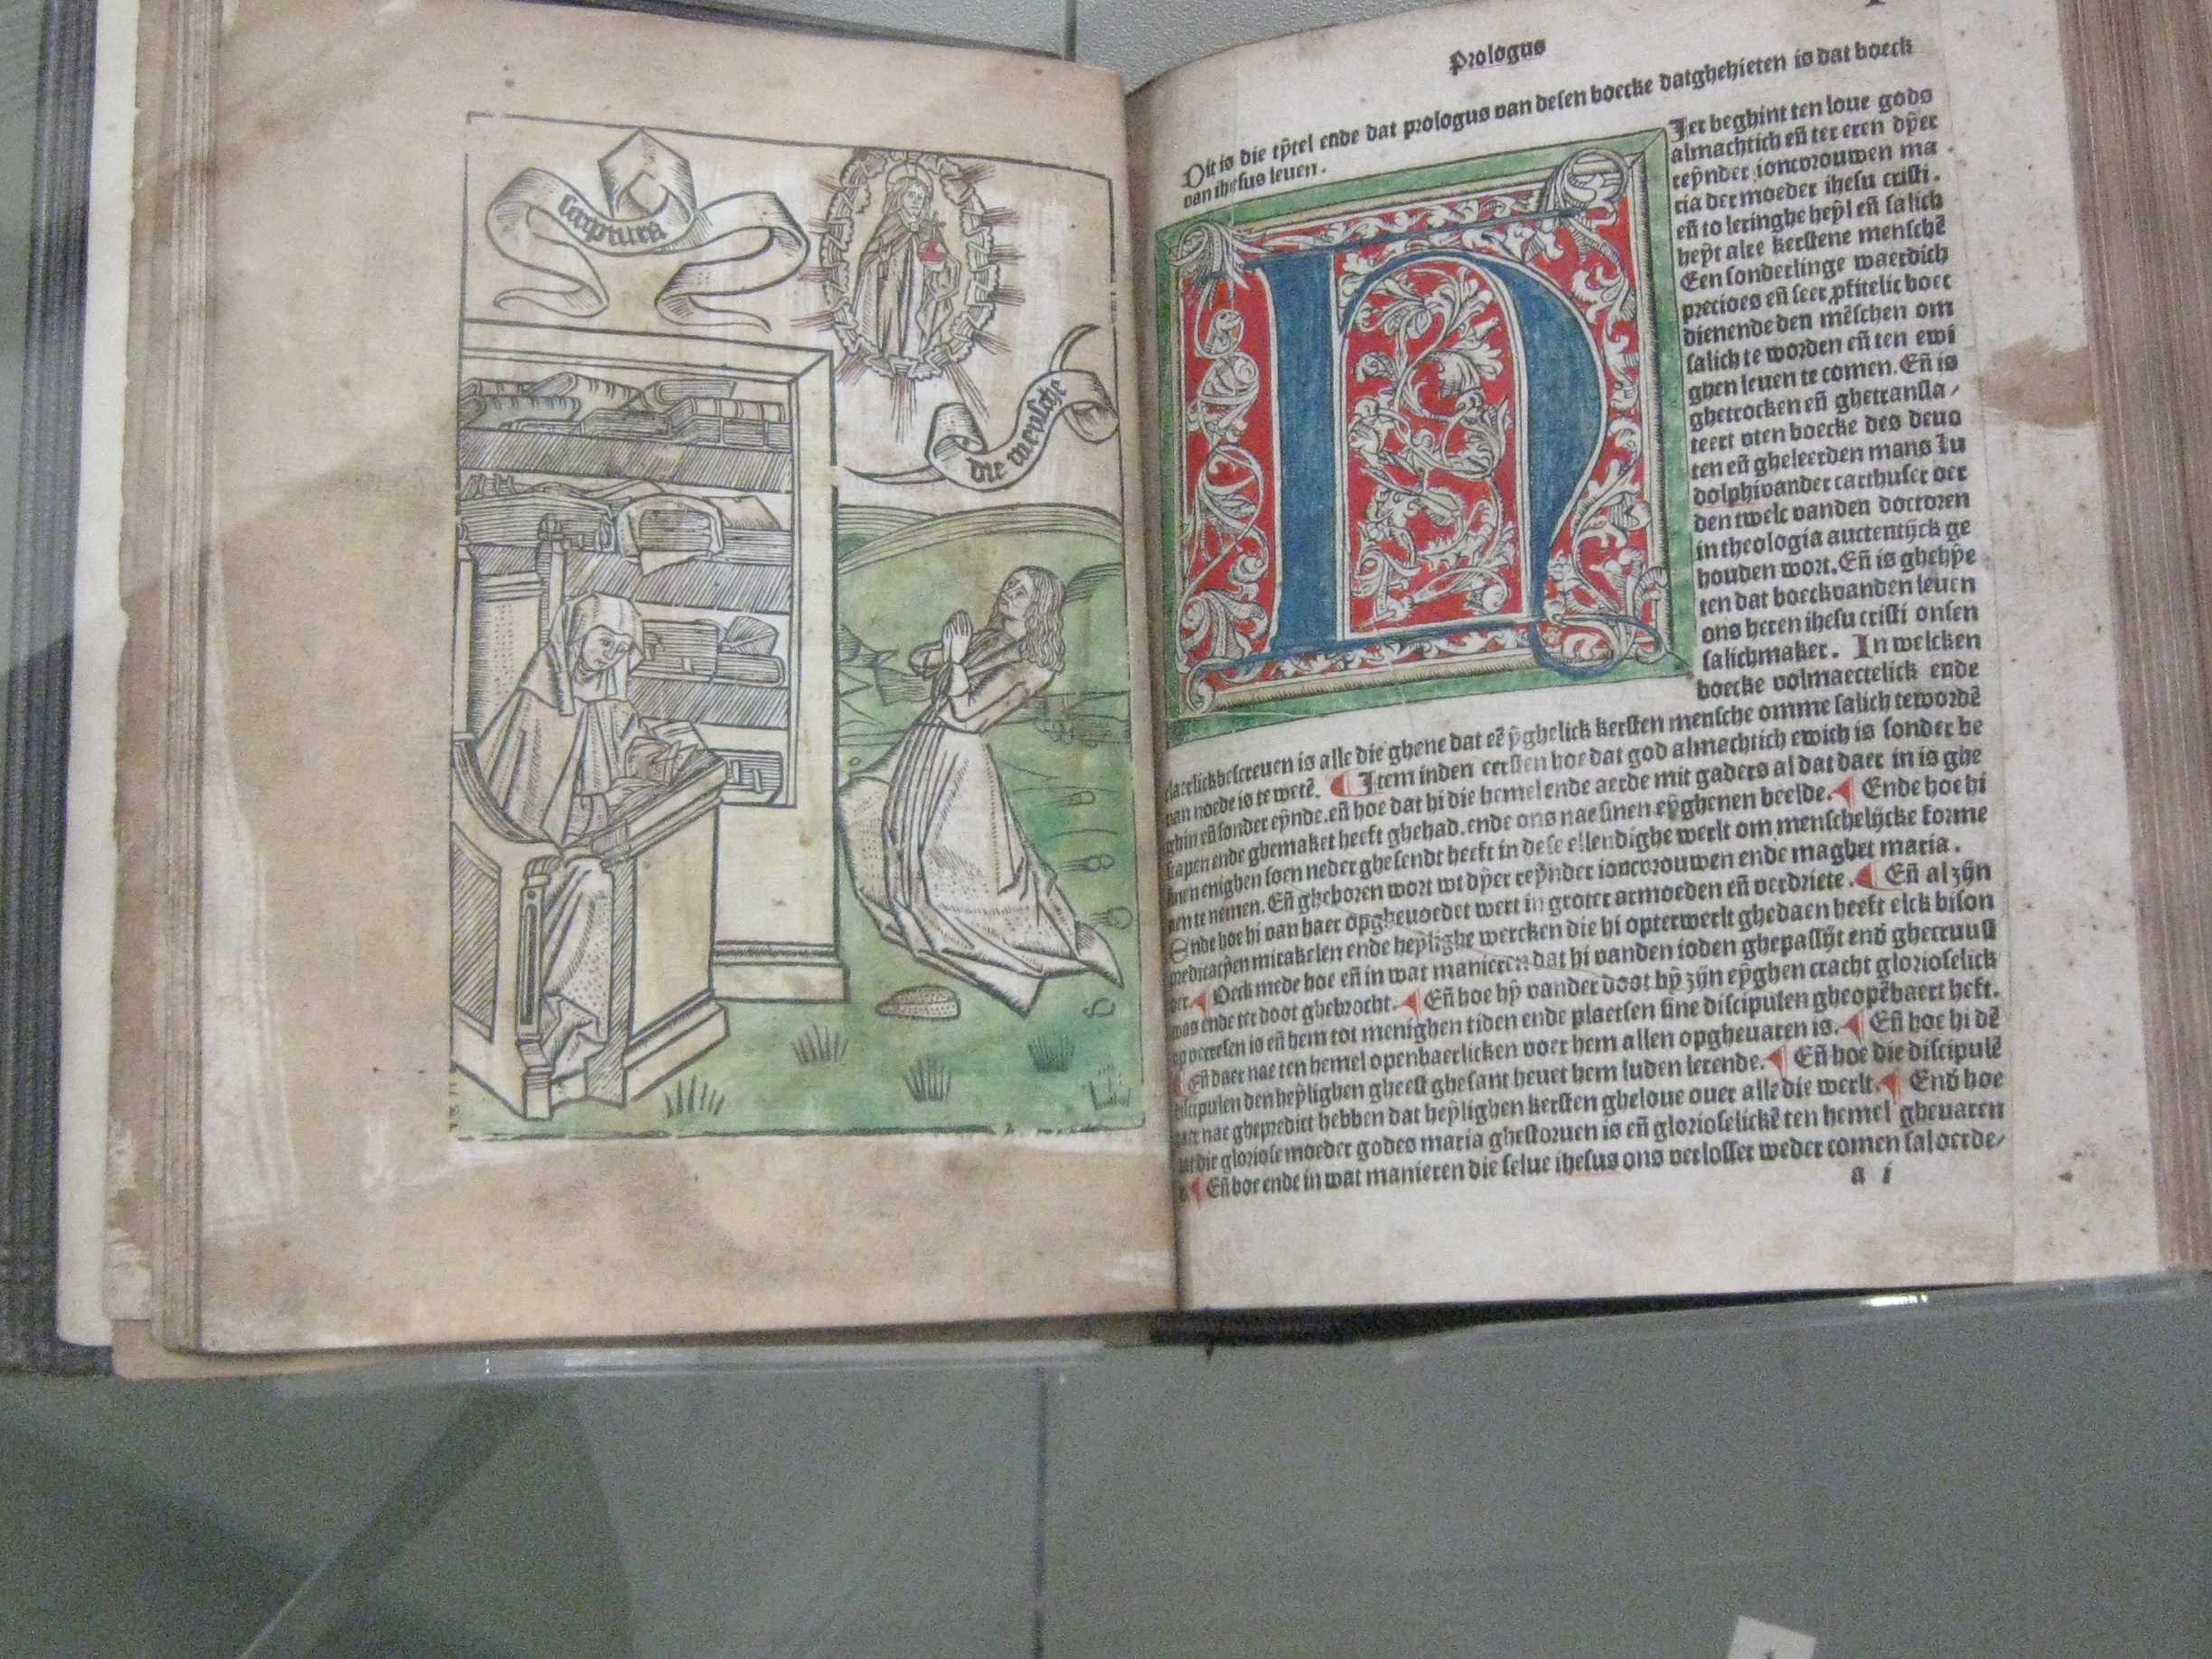 scriptura
die mensche
Prologus
Dit is die tÿtel ende dat prologus van desen boecke datghehieten is dat boeck
van ihesus leuen.
Hier beghint ten loue gods
almachtich eñ ter eren dÿer
reÿnder ioncvrouwen ma
ria der moeder ihesu cristi.
eñ to leringhe heÿl eñ salich
heÿt alre kerstene menschē
Een sonderlinge waerdich
precioes eñ seer pfitelic boec
dienende den mēschen om
salich te worden eñ ten ewi
ghen leuen te comen. Eñ is
ghetrocken eñ ghetransla/
teert vten boecke des deuo
ten eñ gheleerden mans Lu
dolphi vander carthuser oer
den twelc vanden doctoren
in theologia auctentijck ge
houden wort. Eñ is ghehÿe
ten dat boeck vanden leuen
ons heren ihesu cristi onsen
salichmaker. In welcken
boecke volmaectelick ende
claerlick bescreuen is alle die ghene dat eē ÿghelick kersten mensche omme salich te wordē
van node is te wetē. Item inden eersten hoe dat god almachtich ewich is sonder be
ghin eñ sonder eÿnde. eñ hoe dat hi die hemel ende aerde mit gaders al dat daer in is ghe
scapen ende ghemaket heeft ghehad. ende ons nae sinen eÿghenen beelde. Ende hoe hi
sinen enighen soen neder ghesendt heeft in dese ellendighe werlt om menschelijcke forme
aen te nemen. Eñ gheboren wort wt dÿer reÿnder ioncvrouwen ende maghet maria.
Ende hoe hi van haer opgheuoedet wert in groter armoeden eñ verdriete. Eñ al zijn
predicacÿen mirakelen ende heÿlighe wercken die hi opter werlt ghedaen heeft elck bison
der. Oeck mede hoe eñ in wat manieren dat hi vanden ioden ghepassijt end ghecruust
was ende ter doot ghebrocht. Eñ hoe hÿ vander doot bÿ zijn eÿghen cracht glorioselick
op verresen is eñ hem tot menighen tiden ende plaetsen sine discipulen gheopēbaert heft.
Eñ daer nae ten hemel openbaerlicken voer hem allen opgheuaren is. Eñ hoe hi dē
discipulen den heÿlighen gheest ghesant heuet hem luden lerende. Eñ hoe die discipulē
daer nae ghepredict hebben dat heÿlighen kersten gheloue ouer alle die werlt. End hoe
dat die gloriose moeder godes maria ghestoruen is eñ glorioselickē ten hemel gheuaren
is. Eñ hoe ende in wat manieren die selue ihesus ons verlosser weder comen sal oerde/
a i